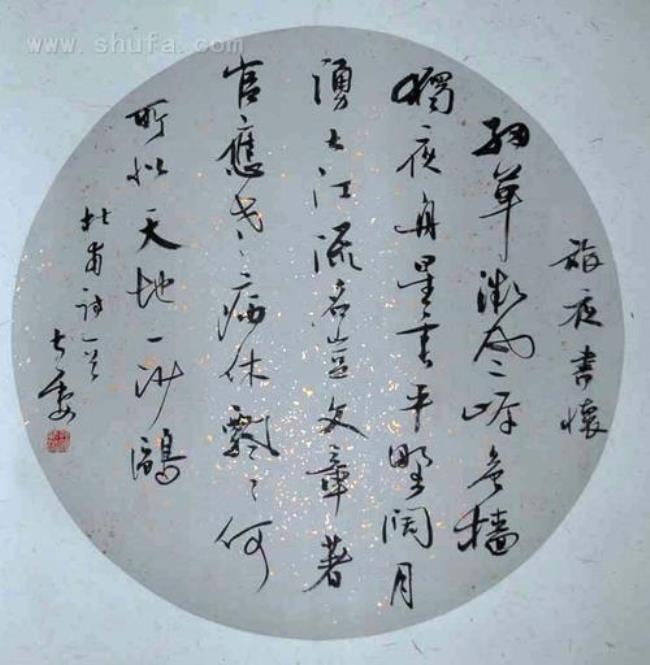 www.shufa.com
旅夜書懷
細草微風岸危檣
獨夜舟星垂平野闊月
湧大江流名豈文章著
官應老病休飄〻何
所似天地一沙鷗
杜甫詩一首